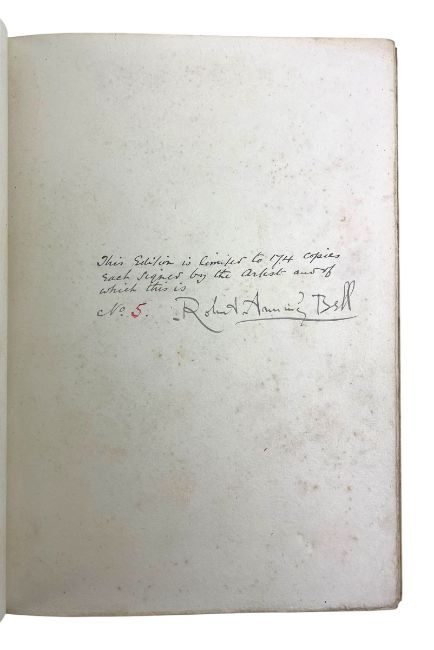 This Edition is limited to 174 copies
each signed by the Artist and of
which this is
No. 5. Robert Anning Bell